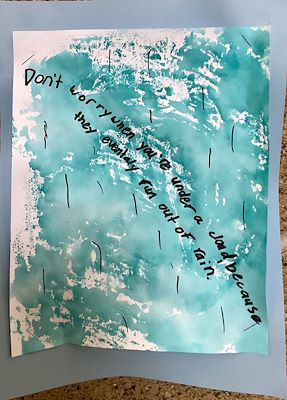 Don't worry when you're under a cloud because
they evenlly run out of rain.